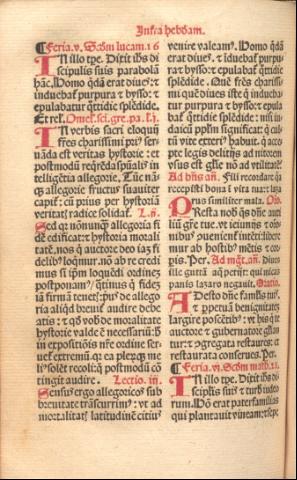 Infra hebdom̄.
¶ Feria. v. Scd̄m lucam. 16
IN illo tꝑe. Dixit iħs di
scipulis suis parabolā
hāc. Homo qdā erat diues: ⁊
induebat̉ purpura ⁊ bysso: ⁊
epulabat̉ qttidie splēdide.
Et rel̄. Omel̄. sci. gre. pa. l. j.
IN verbis sacri eloquij
fr̄es charissimi pri⁹ ser-
uāda est veritas hystorie: ⁊ et
postmodū reqrēda spūalis in
telligētia allegorie. Tūc nāq̄
allegorie fruct⁹ suauiter
capit̉: cū prius per hystoriā
veritat̄ radice solidat̉. L. ij.
Sed qr nonnunq̄ allegoria fi
dē edificat: ⁊ hystoria morali
tatē. nos q auctore deo iaz fi
delib⁹ loqmur. nō ab re credi
mus si ip̄m loquēdi ordinez
postponam⁹: qtinus q fidez
iā firmā tenet̄: pri⁹ de allego
ria aliqd breuit̉ audire debe
atis: ⁊ qđ vob̄ de moralitate
hystorie valde ē necessariū: h̄
in expositiōis nr̄e ordine ser-
uet̉ extremū. qr ea plerūq̄ me
li⁹ solēt recoli: q postmodū cō
tingit audire. Lectio. iij.
Sensus ergo allegoricos sub
breuitate trāscurrim⁹: vt ad
moralitat̄ latitudinē citius
venire valeam⁹. Homo qdā
erat diues. ⁊ iduebat̉ purpu-
rat bysso: ⁊ epulabat̉ qttidie
splēdide. Quē fr̄es charissi-
mi quē diues iste q induebat̉
purpura ⁊ bysso: ⁊
epulabat̉ qttidie splēdide: nisi
iudaicū pp̄lm significat: q cul-
tū vite exteri⁹ habuit. q acce-
pte legis delitijs ad nitorem
vsus est: nō ad vtilitatē?
Ad bn̄s an̄. Fili recordare qr
recepisti bona ī vita tua: laza
rus similiter mala. Or̄o.
PResta nob̄ qs dn̄e auxi
liū gr̄e tue. vt ieiunijs ⁊ or̄o
nibus cōueniēter intēti: libere
mur ab hostib⁹ mētis ⁊ cor-
pis. Per. Ad mḡt. an̄. Diues
ille guttā aq̄ petijt: qui micas
panis lazaro negauit. Oratio.
ADesto dn̄e famulis tuis
⁊ ꝑpetuā benignitatē
largire poscētib⁹: vt his q te
auctore ⁊ gubernatore gl̄ian
tur: ⁊ ꝯgregata restaures: ⁊
restaurata conserues. Per.
¶ Feria. vi. Scd̄m math. 21.
IN illo tꝑe. Dixit iħs di-
scipulis suis ⁊ turbis iude
orum. Homo erat paterfamilias
qui plantauit vineam: ⁊ sepe